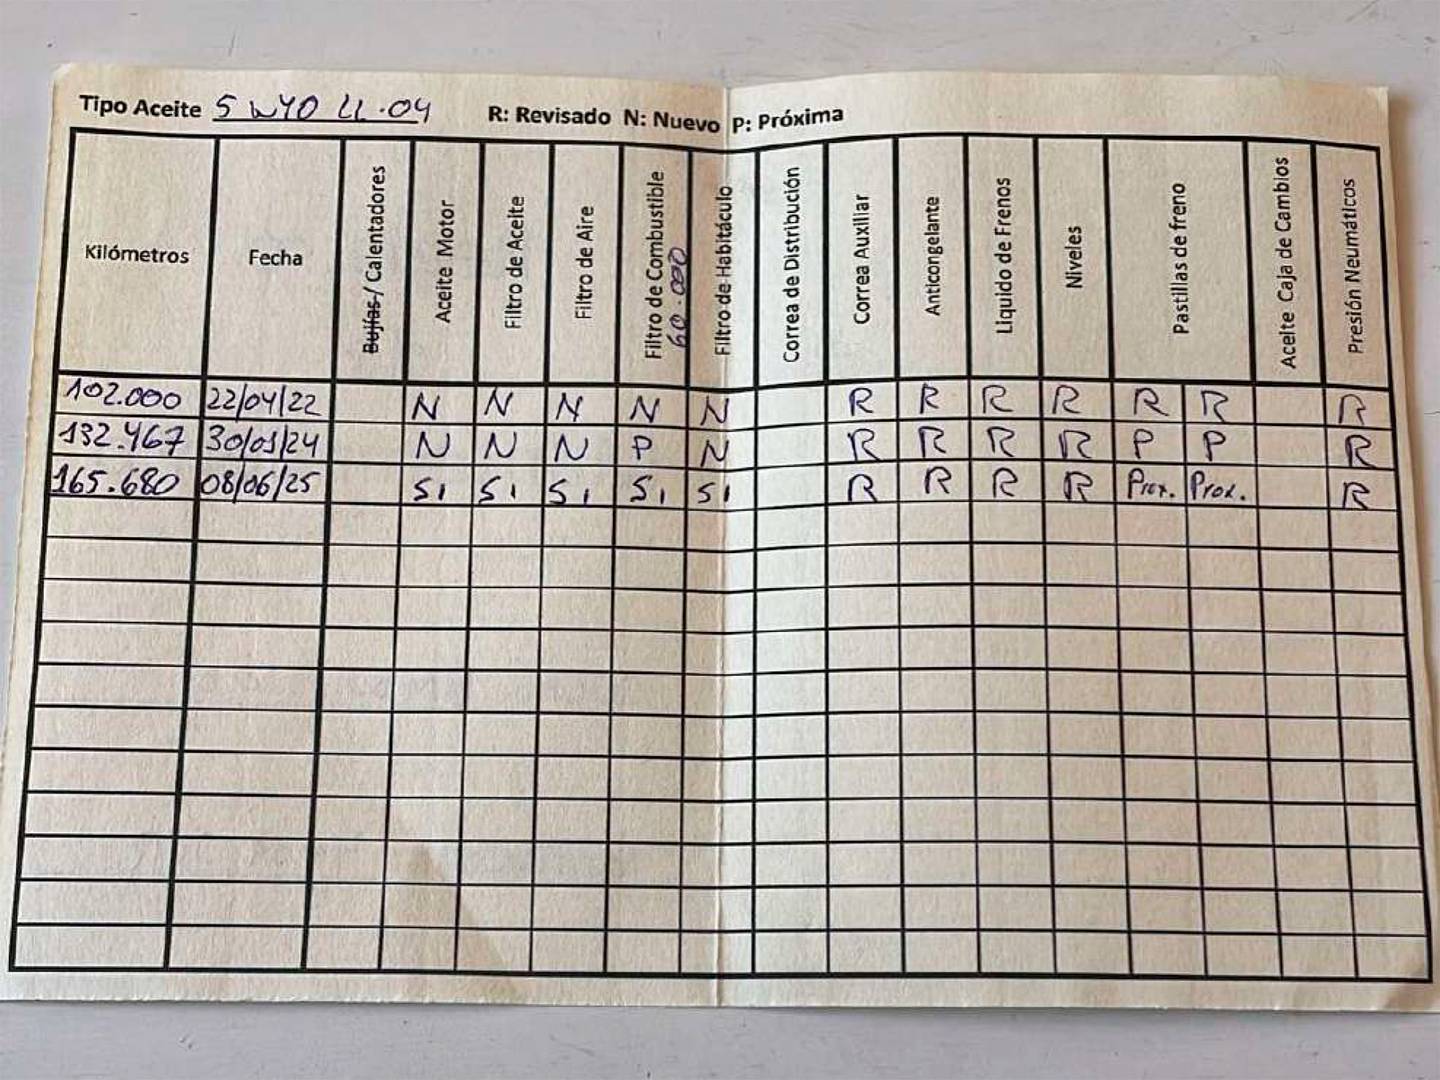 Tipo Aceite 5W40 LL-04 R: Revisado N: Nuevo P: Próxima
Kilómetros Fecha Bujías / Calentadores Aceite Motor Filtro de Aceite Filtro de Aire Filtro de Combustible 60.000 Filtro de Habitáculo Correa de Distribución Correa Auxiliar Anticongelante Liquido de Frenos Niveles Pastillas de freno Aceite Caja de Cambios Presión Neumáticos
102.000 22/04/22 N N N N N R R R R R R R
132.467 30/01/24 N N N P N R R R R P P R
165.680 08/06/25 Si Si Si Si Si R R R R Prox. Prox. R